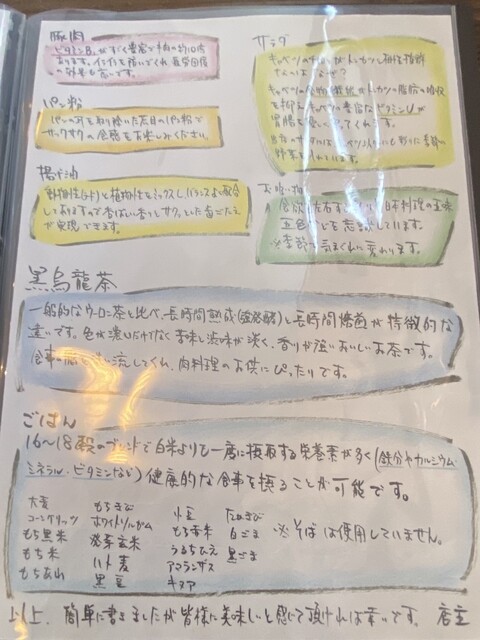 豚肉
ビタミンB₁がすごく豊富で牛肉の約10倍
あります。
の効果も高いです。
パン粉
パンの耳を取り除いた灰目のパン粉で
サックサクの食感をお楽しみください。
揚げ油
動物性(ラード)と植物性をミックスしバランスよく配合
しておりますので香ばしい香りとサクッとした歯ごたえ
が実現できます。
サラダ
キャベツの
さんではないか?
キャベツの食物繊維がトンカツの脂肪の吸収
を抑え、キャベツの豊富なビタミンUが
胃腸を優しく守ってくれます。
野菜を入れています。
お吸い物
食欲を左右する 日本料理の五味
五色などを意識しています。
※季節で気まぐれに変わります。
黒烏龍茶
一般的なウーロン茶と比べ、長時間熟成(強発酵)と長時間焙煎が特徴的な
違いです。色が濃いだけでなく苦味と渋味が淡く、香りが強いおいしいお茶です。
食事の脂を 流してくれ、肉料理のお供にぴったりです。
ごはん
16〜18穀のブレンドで白米よりも一度に摂取する栄養素が多く(鉄分やカルシウム
ミネラル・ビタミンなど)健康的な食事を摂ることが可能です。
大麦 もちきび 小豆 たかきび
コーングリッツ ホワイトソルガム もち赤米 白ごま ※そばは使用していません。
もち黒米 発芽玄米 うるちひえ 黒ごま
もち米 ハト麦 アマランサス
もちあわ 黒豆 キヌア
以上、簡単に書きましたが皆様に美味しいと感じて頂ければ幸いです。 店主